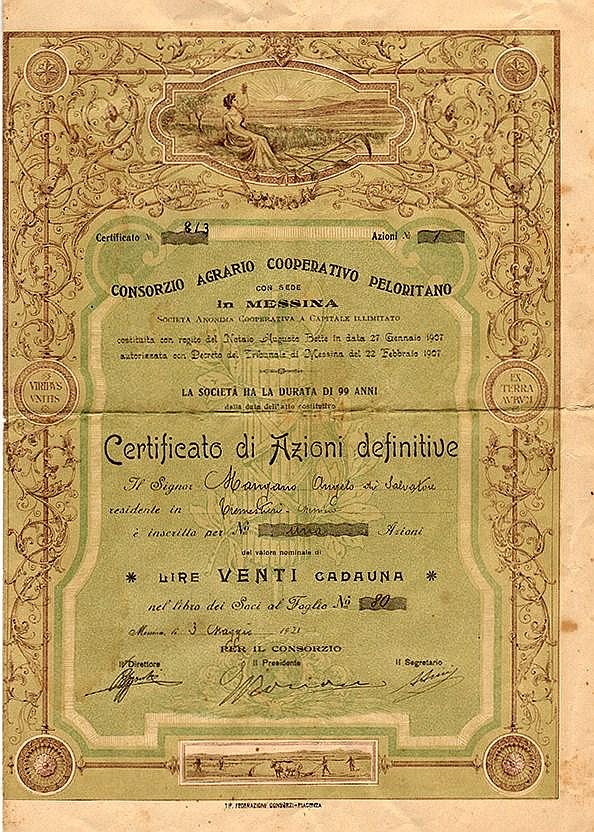 Certificato № 813
Azioni № 1
CONSORZIO AGRARIO COOPERATIVO PELORITANO
CON SEDE
in MESSINA
SOCIETÀ ANONIMA COOPERATIVA A CAPITALE ILLIMITATO
costituita con rogito del Notaio Augusto Bette in data 27 Gennaio 1907
autorizzata con Decreto del Tribunale di Messina del 22 Febbraio 1907
VIRIBVS
VNITIS
EX
TERRA
AVRVM
LA SOCIETÀ HA LA DURATA DI 99 ANNI
dalla data dell'atto costitutivo
Certificato di Azioni definitive
Il Signor Mangano Angelo di Salvatore
residente in Tremestieri
è inscritto per № una Azioni
del valore nominale di
* LIRE VENTI CADAUNA *
nel libro dei Soci al Foglio № 80
Messina, li 3 Maggio 1921
PER IL CONSORZIO
Il Direttore
Il Presidente
Il Segretario
TIP. FEDERAZIONE CONSORZI-PIACENZA